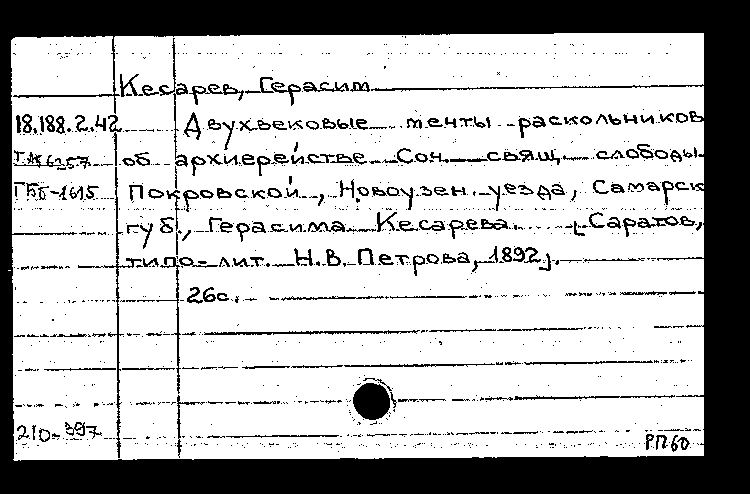 Кесарев, Герасим
18.188.2.42 Двухвековые менты раскольников
об архиерействе Соч. свящ. слободы
ГБб-1615 Покровской, Новоузен. уезда, Самарск
губ., Герасима Кесарева. [Саратов,
типо-лит. Н.В. Петрова, 1892].
26с.
210-397
РП 60